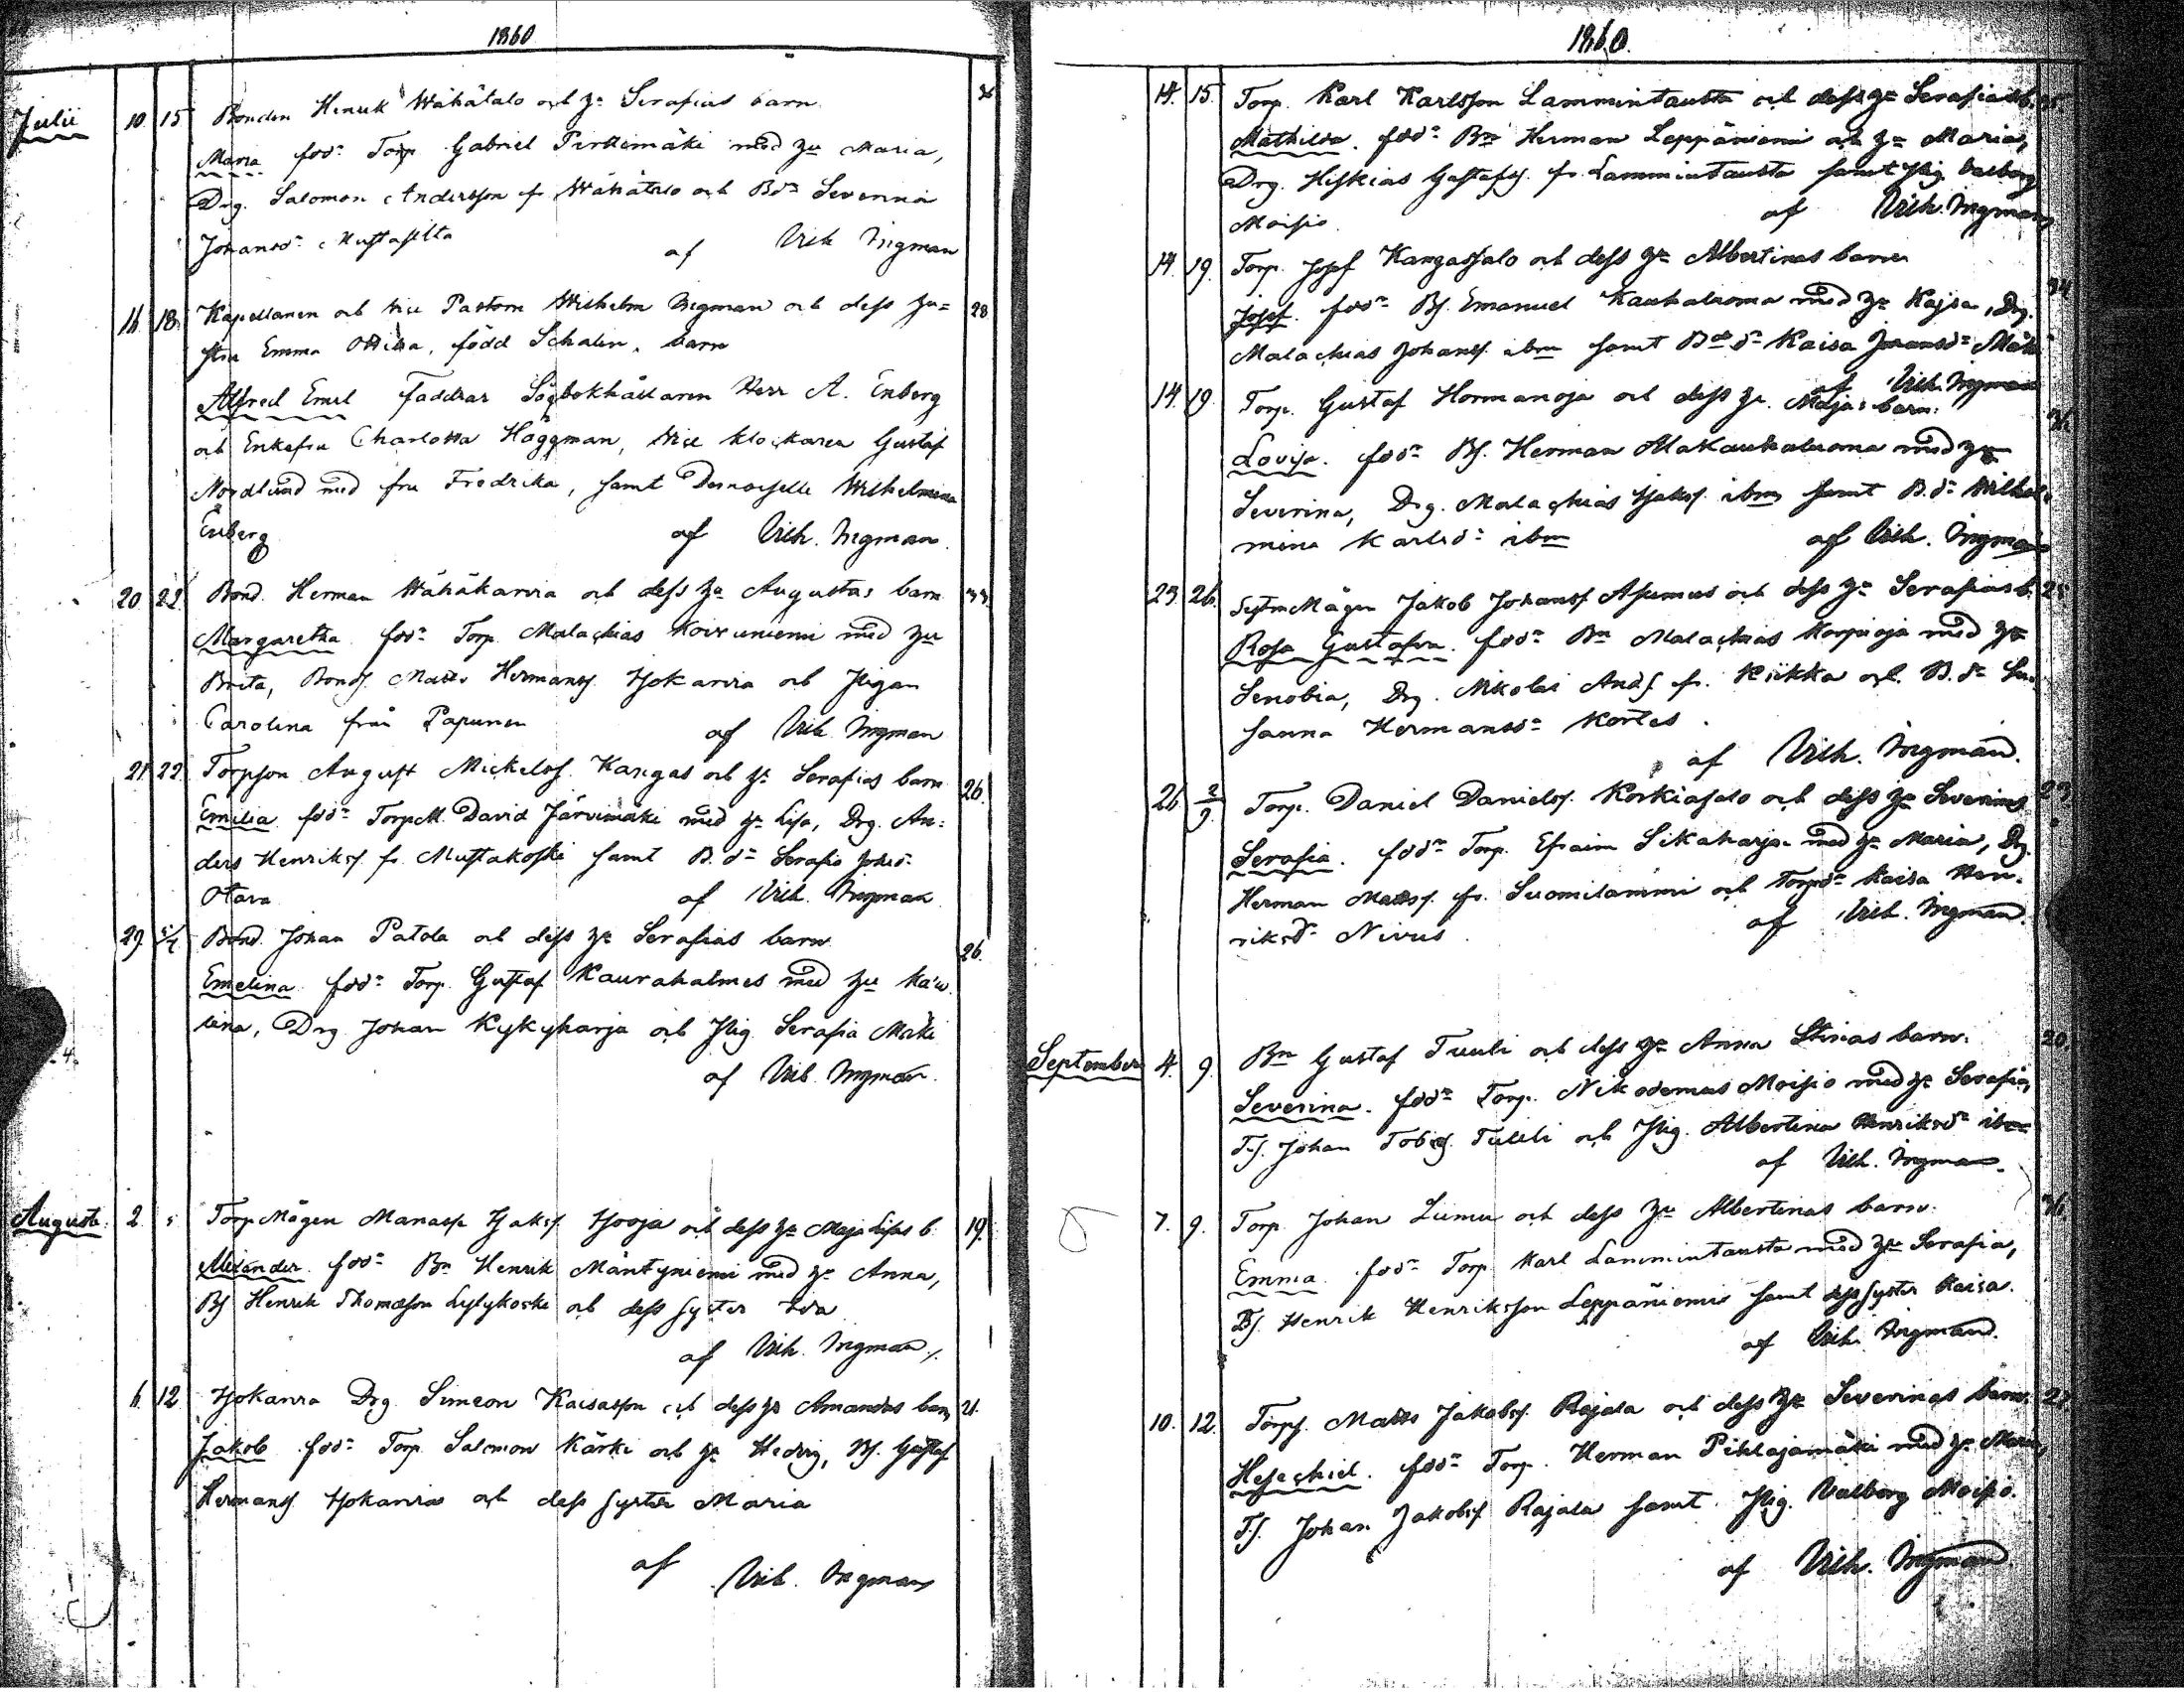 1860
Julii 10 15 Bonden Henrik Wähätalo och h:u Serafias barn
Maria fdd:r Torp Gabriel Pirttimäki med h:u Maria,
Drg. Salomon Andersson fr Wähätalo och Bd:r Severina
Johansd:r Mustasilta af Vilh Ingman
16 18 Kapellanen och Vice Pastorn Wilhelm Ingman och dess hu= 28
stru Emma Ottilia, född Schalin, barn
Alfred Emil Faddrar Sågbokhållaren Herr A. Enberg
och Enkefru Charlotta Häggman, Vice klockaren Gustaf
Nordlund med fru Fredrika, samt Demoiselle Wilhelmina
Enberg af Vilh. Ingman
20 22 Bond. Herman Wähäkarvia och dess h:u Augustas barn 33
Margaretha fdd:r Torp. Malachias Koivuniemi med h:u
Brita, Bonds. Matts Hermanss. Yokarvia och Pigan
Carolina från Papunen af Vilh Ingman
21 22 Torpson August Mickelss. Kangas och h:u Serafias barn 26.
Emilia fdd:r TorpM. David Järvimäki med h:u Lisa, Drg. An=
ders Henrikss. fr. Mustakoski samt B.d:r Serafia Johsd:r
Otava af Vilh. Ingman
29 Bond. Johan Patola och dess h:u Serafias barn 26.
Emelina fdd:r Torp. Gustaf Kaurahalmes med h:u
Drg Johan Kykyharja och Pig. Serafia Mäki
af Vilh Ingman.
Augusti. 2 5 TorpMågen Manasse Yrjöja och dess h:u Maja Lisas b. 19.
Alexander. fdd:r Bn Henrik Mäntyniemi med h:u Anna,
Bs Henrik Thomasson Lylykoski och dess syster Eva
af Vilh. Ingman.
6. 12 Yokarvia Drg Simeon Kaisasson och dess h:u Amandas barn 21.
Jakob fdd:r Torp. Salomon Kärki och h:u Hedvig, Bs. Gustaf
Hermanss Yokarvia och dess syster Maria
af Vilh. Ingman
1860.
14. 15. Torp. Karl Karlsson Lammintausta och dess h:u Serafias b.
Mathilda. fdd:r Bn Herman Leppäniemi och h:u Maria,
Drg. Hiskias Gustafs. fr. Lammintausta samt Pig. Valborg
Moisio. af Vilh. Ingman
14. 19. Torp. Josef Kangassalo och dess h:u Albertinas barn
Josef. fdd:r Bs. Emanuel Kauhaluoma med h:u Kajsa, Drg.
Malachias Johanss. ibm samt Bd:r Kaisa Johansd:r Mäki
af Vilh. Ingman
14. 19. Torp. Gustaf Hormanoja och dess h:u Majas barn.
Lovisa. fdd:r Bs. Herman Alakauhaluoma med h:u
Severina, Drg. Malachias Jakss. ibm samt B.d:r Wilhel=
mina Karlsd:r ibm af Vilh. Ingman
23. 26. SystmMågen Jakob Johanss. Asumus och dess h:u Serafias b. 25
Rosa Gustafva. fdd:r Bn Malachias Korpioja med h:u
Senobia, Drg. Nikolai Ands. fr. Kiikka och B.d:r Su=
sanna Hermansd:r Kortes.
af Vilh. Ingman.
26 2/9 Torp. Daniel Danielss. Korkiasalo och dess h:u Severinas
Serafia. fdd:r Torp. Efraim Sikaharja med h:u Maria, Drg.
Herman Matss. fr. Suomilammi och Torpd:r Kaisa Hen=
riksd:r Nivus af Vilh. Ingman.
September 4. 9. Bn Gustaf Tuuli och dess h:u Anna Stinas barn. 20.
Severina. fdd:r Torp. Nikodemus Moisio med h:u Serafia,
T.s. Johan Tobias. Tuuli och Pig. Albertina Henriksd:r ibm
af Vilh. Ingman.
7. 9. Torp. Johan Lumu och dess h:u Albertinas barn.
Emma fdd:r Torp. Karl Lammintausta med h:u Serafia,
Bs. Henrik Henriksson Leppäniemi samt dess syster Kaisa.
af Vilh. Ingman.
10. 12. Torps. Matts Jakobss. Rajala och dess h:u Severinas barn.
Hesechiel. fdd:r Torp. Herman Pihlajamäki med h:u Maria,
T.s. Johan Jakobss. Rajala samt Pig. Valborg Moisio.
af Vilh. Ingman